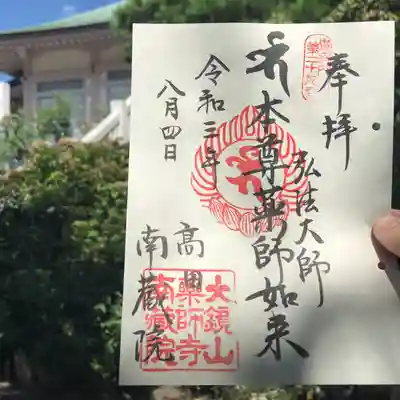 奉拝
弘法大師
本尊薬師如来
令和三年
八月四日
高田
南蔵院
大鏡山
薬師寺
南蔵院